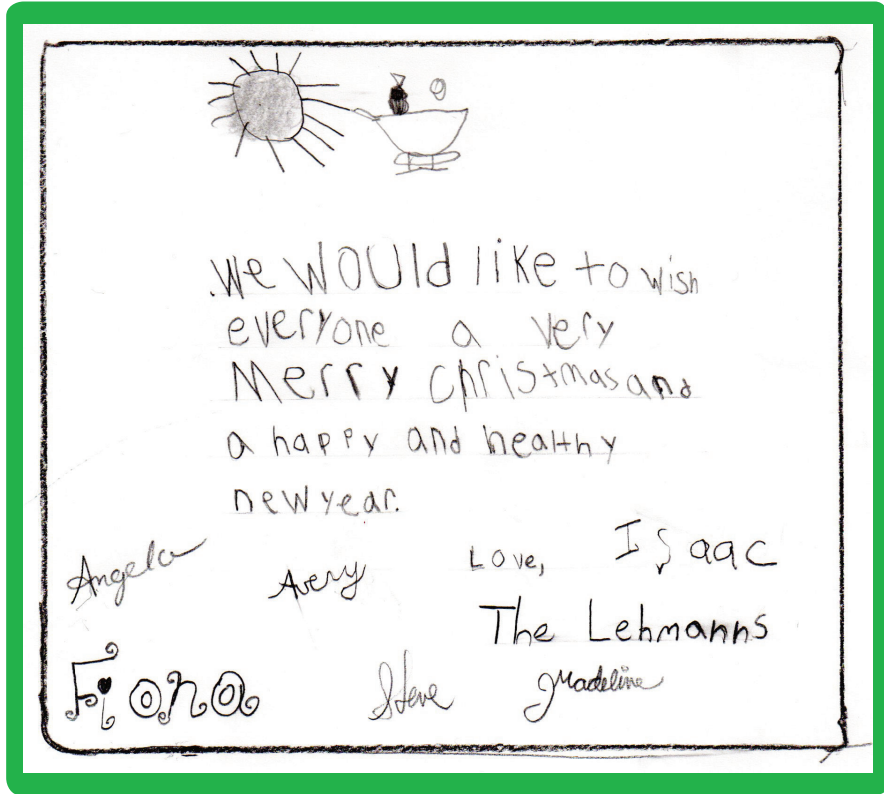 We WOUld like to wish
everyone a very
Merry Christmas and
a happy and healthy
new year.
Love,
Isaac
Angela
Avery
The Lehmanns
Fiona
Steve
Madeline